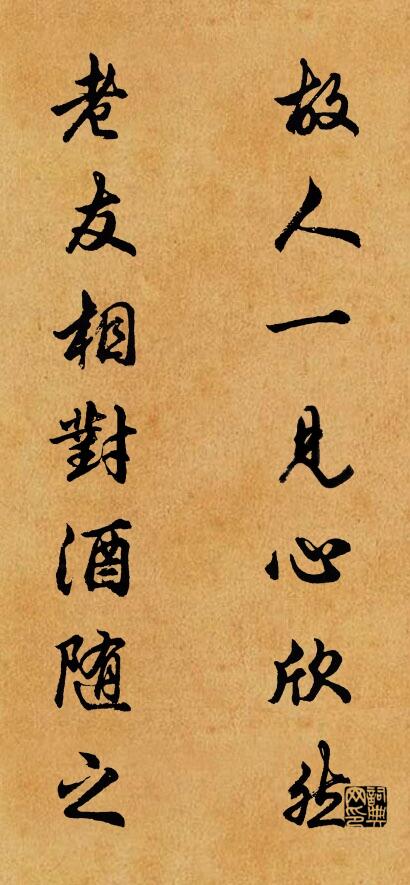 故人一見心欣然
老友相對酒随之
詞典网印